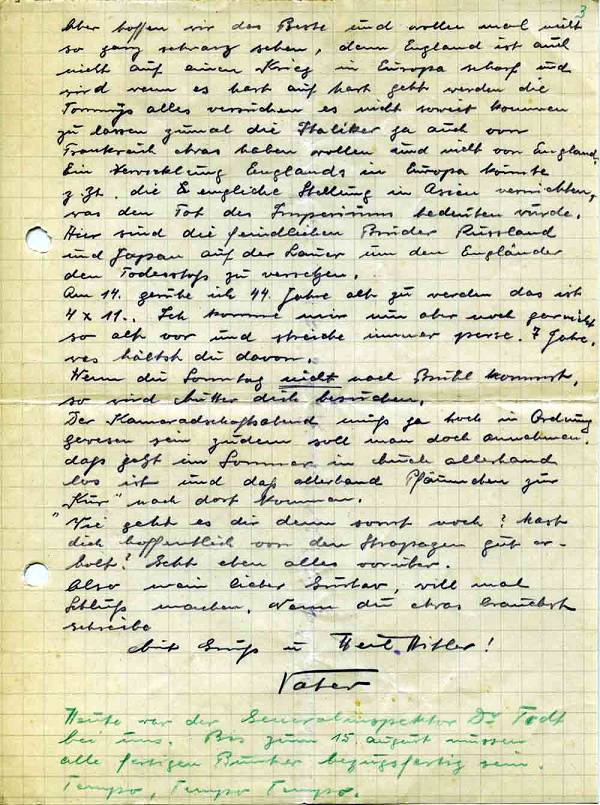 3
Aber hoffen wir das Beste und wollen mal nicht
so ganz schwarz sehen, denn England ist auch
nicht auf einen Krieg in Europa scharf und
wird wenn es hart auf hart geht werden die
Tommys alles versuchen es nicht soweit kommen
zu lassen zumal die Italiker ja auch von
Frankreich etwas haben wollen und nicht von England.
Ein Verwicklung Englands in Europa könnte
z. Zt. die englische Stellung in Asien vernichten,
was den Tot des Imperiums bedeuten würde.
Hier sind die feindlichen Brüder Russland
und Japan auf der Lauer um den Engländer
den Todesstoß zu versetzen.
Am 14. geruhe ich 44. Jahre alt zu werden das ist
4 x 11.. Ich komme mir nun aber noch gar nicht
so alt vor und streiche immer 7 Jahre.
was hältst du davon.
Wenn du Sonntag nicht nach Brühl kommst,
so wird Mutter dich besuchen.
Der Kameradschaftsabend muß ja hoch in Ordnung
gewesen sein zudem soll man doch annehmen.
daß jetzt im Sommer in allerhand
los ist und daß allerhand zur
"Kur" nach dort kommen.
"Wie geht es dir denn sonst noch? hast
dich hoffentlich von den Strapazen gut er-
holt? Geht eben alles vorüber.
Also mein lieber Gustav, will mal
Schluß machen. Wenn du etwas brauchst
schreibe
Mit Gruß u Heil Hitler!
Vater
Heute war der Generalinspektor Dr Todt
bei uns. Bis zum 15. august müssen
alle fertigen Bunker bezugsfertig sein.
Tempo, Tempo Tempo.